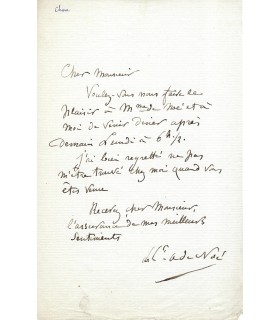 Cham
Cher Monsieur
Voulez-vous nous faire le
plaisir à Mme de Noé et à
moi de venir diner après
demain Lundi à 6h 1/2.
j'ai bien regretté ne pas
m'être trouvé chez moi quand vous
êtes venu
Recevez cher Monsieur
l'assurance de mes meilleurs
sentiments
A de Noé